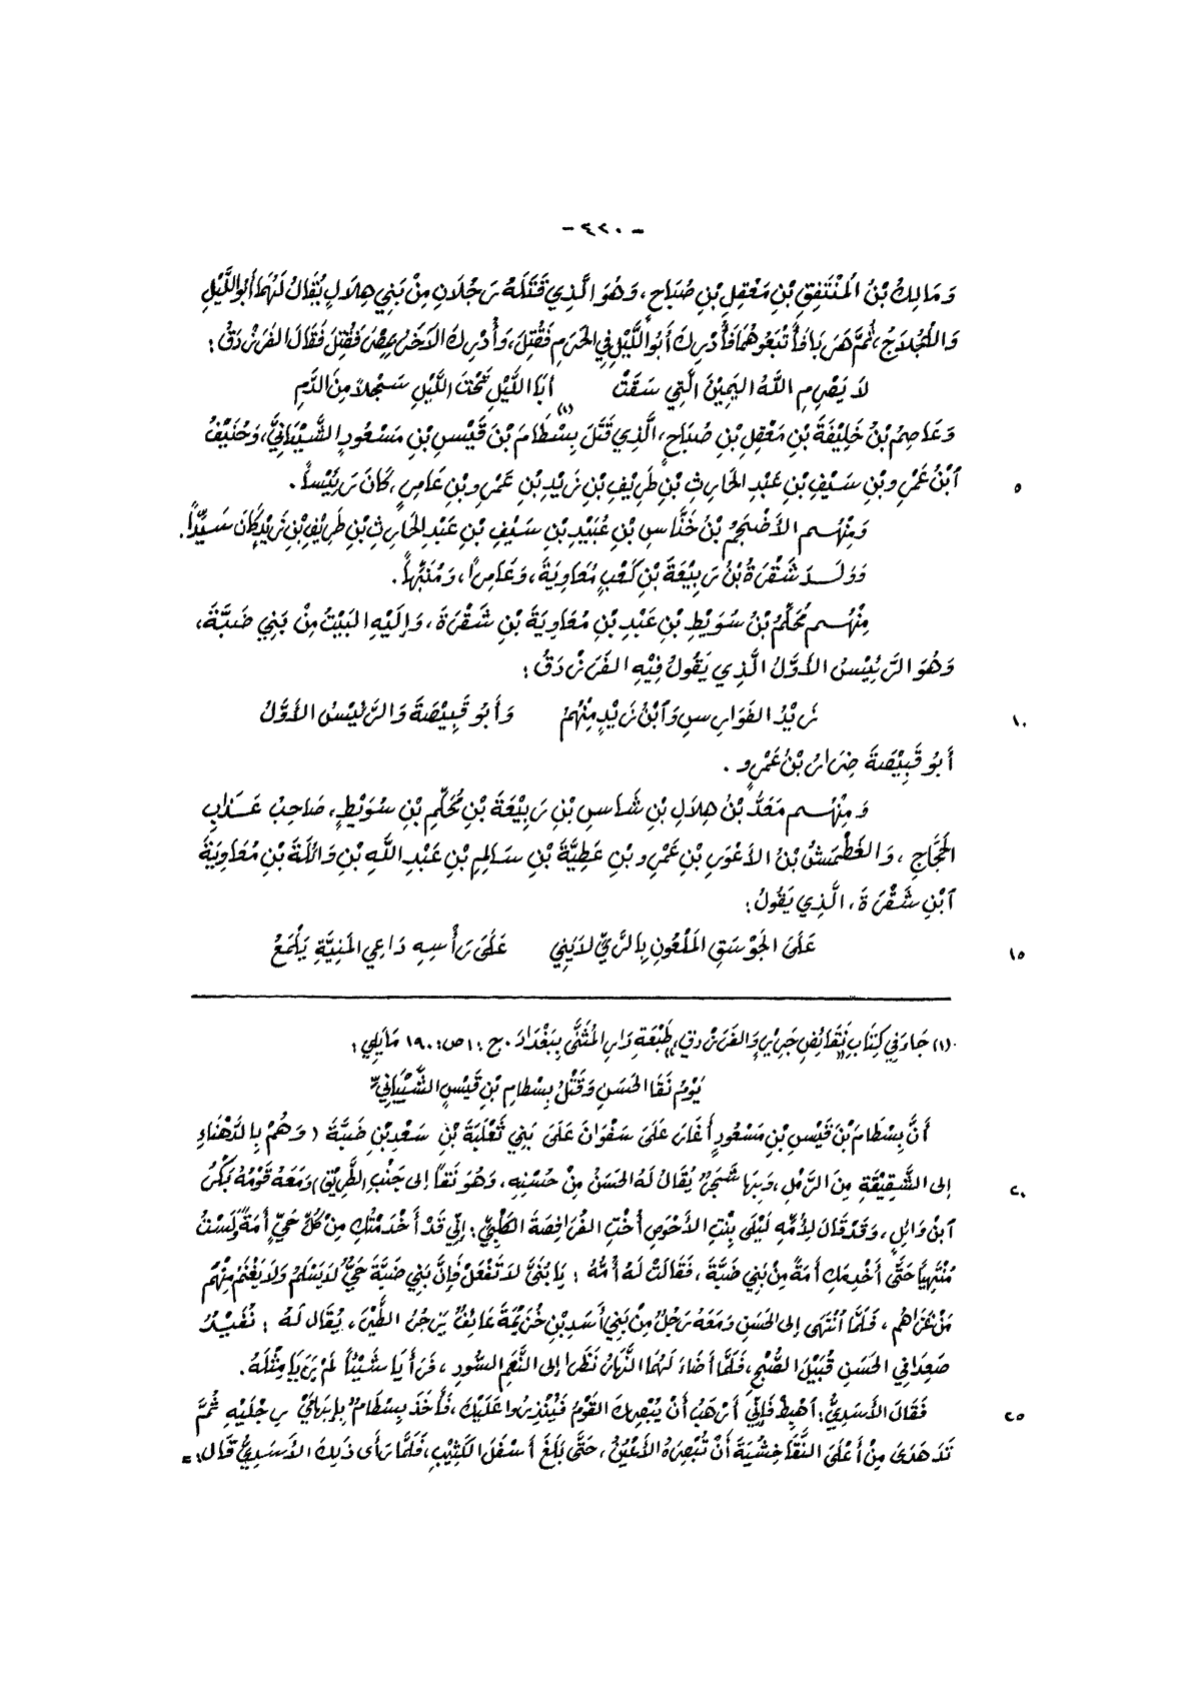 - ٤٢٠ -
وَمَالِكُ بْنُ المُنْتَفِقِ بْنِ مَعْقِلِ بْنِ صُبَاحٍ، وَهُوَ الَّذِي قَتَلَهُ رَجُلَانِ مِنْ بَنِي هِلَالٍ يُقَالُ لَهُمَا أَبُو اللَّيْلِ
وَالمُجْلَاجُ، ثُمَّ هَرَبَا فَأُتْبِعُوهُمَا فَأُدْرِكَ أَبُو اللَّيْلِ فِي الحَرَمِ فَقُتِلَ، وَأُدْرِكَ الآخَرُ بِمِصْرَ فَقُتِلَ فَقَالَ الفَرَزْدَقُ:
لَا يَصْرِمِ اللَّهُ اليَمِينَ الَّتِي سَقَتْ     أَبَا اللَّيْلِ تَحْتَ اللَّيْلِ سَجْلاً مِنَ الدَّمِ
وَعَاصِمُ بْنُ خَلِيفَةَ بْنِ مَعْقِلِ بْنِ صُبَاحٍ، الَّذِي قَتَلَ بِسْطَامَ بْنَ قَيْسِ بْنِ مَسْعُودٍ الشَّيْبَانِيَّ، (١) وَحُنَيْفُ
٥ ابْنُ عَمْرِو بْنِ سَيْفِ بْنِ عَبْدِ الحَارِثِ بْنِ طَرِيفِ بْنِ زَيْدِ بْنِ عَمْرِو بْنِ عَامِرٍ، كَانَ رَئِيْساً.
وَمِنْهُم الأَضْجَمُ بْنُ خَنَّاسِ بْنِ عُبَيْدِ بْنِ سَيْفِ بْنِ عَبْدِ الحَارِثِ بْنِ طَرِيْفِ بْنِ زَيْدٍ كَانَ سَيِّداً.
وَوَلَدَ شَقْرَةُ بْنُ رَبِيْعَةَ بْنِ كَعْبٍ مُعَاوِيَةَ، وَعَامِراً، وَمُنَبِّهاً.
مِنْهُم مُحَلِّمُ بْنُ سُوَيْطِ بْنِ عَبْدِ بْنِ مُعَاوِيَةَ بْنِ شَقْرَةَ، وَإِلَيْهِ البَيْتُ مِنْ بَنِي ضَبَّةَ،
وَهُوَ الرَّئِيْسُ الأَوَّلُ الَّذِي يَقُولُ فِيْهِ الفَرَزْدَقُ:
١٠ زَيْدُ الفَوَارِسِ وَابْنُ زَيْدٍ مِنْهُمُ     وَأَبُو قَبِيْصَةَ وَالرَّئِيْسُ الأَوَّلُ
أَبُو قَبِيْصَةَ ضِرَارُ بْنُ عَمْرٍو.
وَمِنْهُم مَعَدُّ بْنُ هِلَالِ بْنِ شَاسِ بْنِ رَبِيْعَةَ بْنِ مُحَلِّمِ بْنِ سُوَيْطٍ، صَاحِبُ عَذَابِ
الحَجَّاجِ، وَالغَطَمَّشُ بْنُ الأَعْوَرِ بْنِ عَمْرِو بْنِ عَطِيَّةَ بْنِ سَالِمِ بْنِ عَبْدِ اللَّهِ بْنِ وَائِلَةَ بْنِ مُعَاوِيَةَ
ابْنِ شَقْرَةَ، الَّذِي يَقُولُ:
١٥ عَلَى الجَوْسَقِ المَلْعُونِ بِالرَّيِّ لَا يَنِي     عَلَى رَأْسِهِ دَاعِي المَنِيَّةِ يَلْمَعُ
(١) جَاءَ فِي كِتَابِ نَقَائِضِ جَرِيْرٍ وَالفَرَزْدَقِ، طَبْعَةِ دَارِ المُثَنَّى بِبَغْدَادَ. ج: ١ ص: ١٩٠ مَايَلِي:
يَوْمُ نَقَا الحَسَنِ وَقَتْلُ بِسْطَامِ بْنِ قَيْسٍ الشَّيْبَانِيِّ
أَنَّ بِسْطَامَ بْنَ قَيْسِ بْنِ مَسْعُودٍ أَغَارَ عَلَى سَفْوَانَ عَلَى بَنِي ثَعْلَبَةَ بْنِ سَعْدِ بْنِ ضَبَّةَ (وَهُمْ بِالدَّهْنَاءِ
٢٠ إِلَى الشَّقِيْقَةِ مِنَ الرَّمْلِ، وَبِهَا شَجَرٌ يُقَالُ لَهُ الحَسَنُ مِنْ حُسْنِهِ، وَهُوَ نَقاً إِلَى جَنْبِ الطَّرِيْقِ) وَمَعَهُ قَوْمُهُ بَكْرُ
ابْنُ وَائِلٍ، وَقَدْ قَالَ لِأُمِّهِ لَيْلَى بِنْتِ الأَحْوَصِ أُخْتِ الفُرَافِصَةَ الكَلْبِيِّ: إِنِّي قَدْ أَخْدَمْتُكِ مِنْ كُلِّ حَيٍّ أَمَةً وَلَسْتُ
مُنْتَهِياً حَتَّى أُخْدِمَكِ أَمَةً مِنْ بَنِي ضَبَّةَ، فَقَالَتْ لَهُ أُمُّهُ: يَا بُنَيَّ لَا تَفْعَلْ فَإِنَّ بَنِي ضَبَّةَ حَيٌّ لَا يَسْلَمُ وَلَا يَغْنَمُ مِنْهُمْ
مَنْ غَزَاهُم، فَلَمَّا انْتَهَى إِلَى الحَسَنِ وَمَعَهُ رَجُلٌ مِنْ بَنِي أَسَدِ بْنِ خُزَيْمَةَ عَائِفٌ يَزْجُرُ الطَّيْرَ، يُقَالُ لَهُ: نُقَيْدُ
صَعِدَا فِي الحَسَنِ قُبَيْلَ الصُّبْحِ، فَلَمَّا أَضَاءَ لَهُمَا النَّهَارُ نَظَرَا إِلَى النَّعَمِ السُّودِ، فَرَأَيَا شَيْئاً لَمْ يَرَيَا مِثْلَهُ.
٢٥ فَقَالَ الأَسَدِيُّ: اهْبِطْ فَإِنِّي أَرْهَبُ أَنْ يُبْصِرَكَ القَوْمُ فَيُنْذِرُوا عَلَيْكَ، فَأَخَذَ بِسْطَامٌ بِإِبْهَامَيْ رِجْلَيْهِ ثُمَّ
تَدَهْدَى مِنْ أَعْلَى النَّقَا خِشْيَةَ أَنْ تُبْصِرَهُ الأَعْيُنُ، حَتَّى بَلَغَ أَسْفَلَ الكَثِيْبِ، فَلَمَّا رَأَى ذَلِكَ الأَسَدِيُّ قَالَ: =